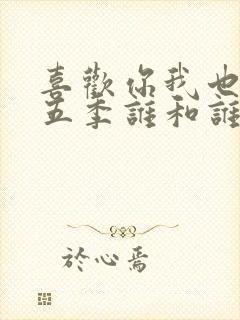 喜歡你我也
五季誰和誰
於心焉